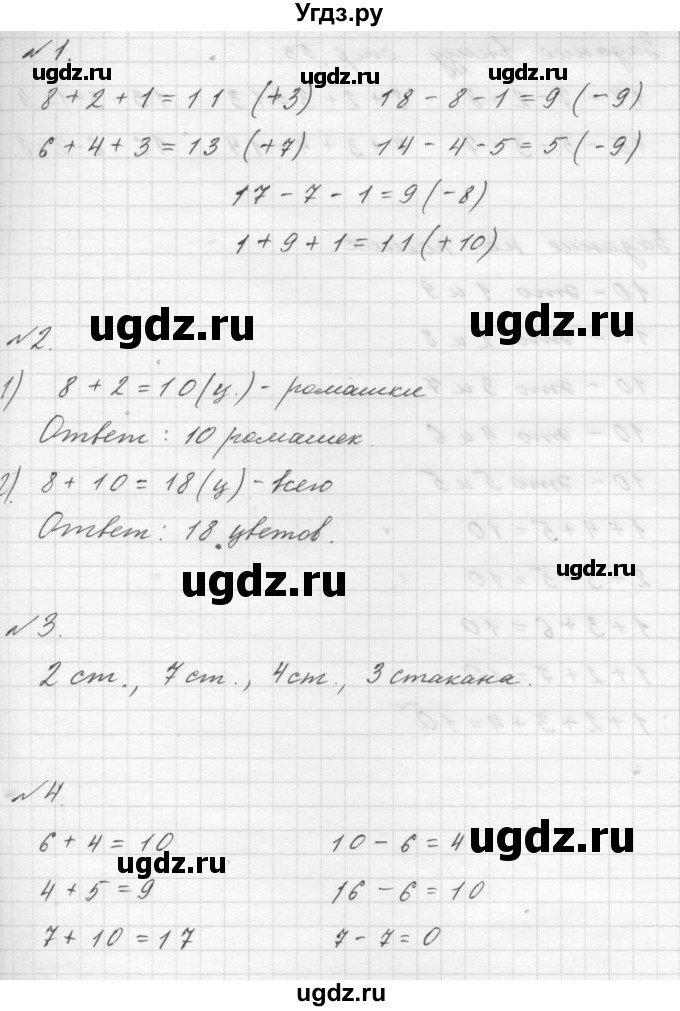 Угдз.ру
№1.
8 + 2 + 1 = 11 (+3) 18 - 8 - 1 = 9 (-9)
ugdz.ru ugdz.ru
6 + 4 + 3 = 13 (+7) 14 - 4 - 5 = 5 (-9)
17 - 7 - 1 = 9 (-8)
1 + 9 + 1 = 11 (+10)
ugdz.ru ugdz.ru
№2.
1) 8 + 2 = 10 (ц.) - ромашки
Ответ: 10 ромашек.
2). 8 + 10 = 18 (ц) - всего
Ответ: 18 цветов.
ugdz.ru ugdz.ru
№3.
2 ст., 7 ст., 4 ст., 3 стакана.
№4.
6 + 4 = 10 10 - 6 = 4
ugdz.ru ugdz.ru
4 + 5 = 9 16 - 6 = 10
7 + 10 = 17 7 - 7 = 0
ugdz.ru